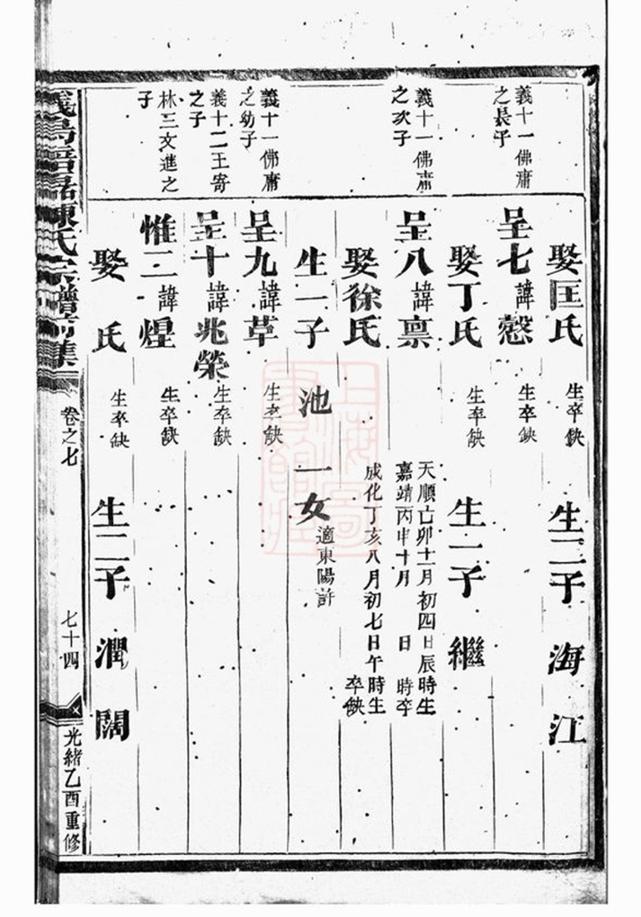 娶匡氏 生卒缺 生二子 海 江
義十一佛庸
之長子
呈七諱慤 生卒缺
娶丁氏 生卒缺 生一子 繼
義十一佛庸
之次子
呈八諱禀 天順己卯十一月初四日辰時生
嘉靖丙申十月 日 時卒
娶徐氏 成化丁亥八月初七日午時生
卒缺
生一子 池 一女 適東陽許
義十一佛庸
之幼子
呈九諱草 生卒缺
義十二王寄
之子
呈十諱兆榮 生卒缺
林三文進之
子
惟二諱煋 生卒缺
娶 氏 生卒缺 生二子 潤 闊
義烏 陳氏宗譜前集 卷之七 七十四 光緒乙酉重修
上海圖書館藏